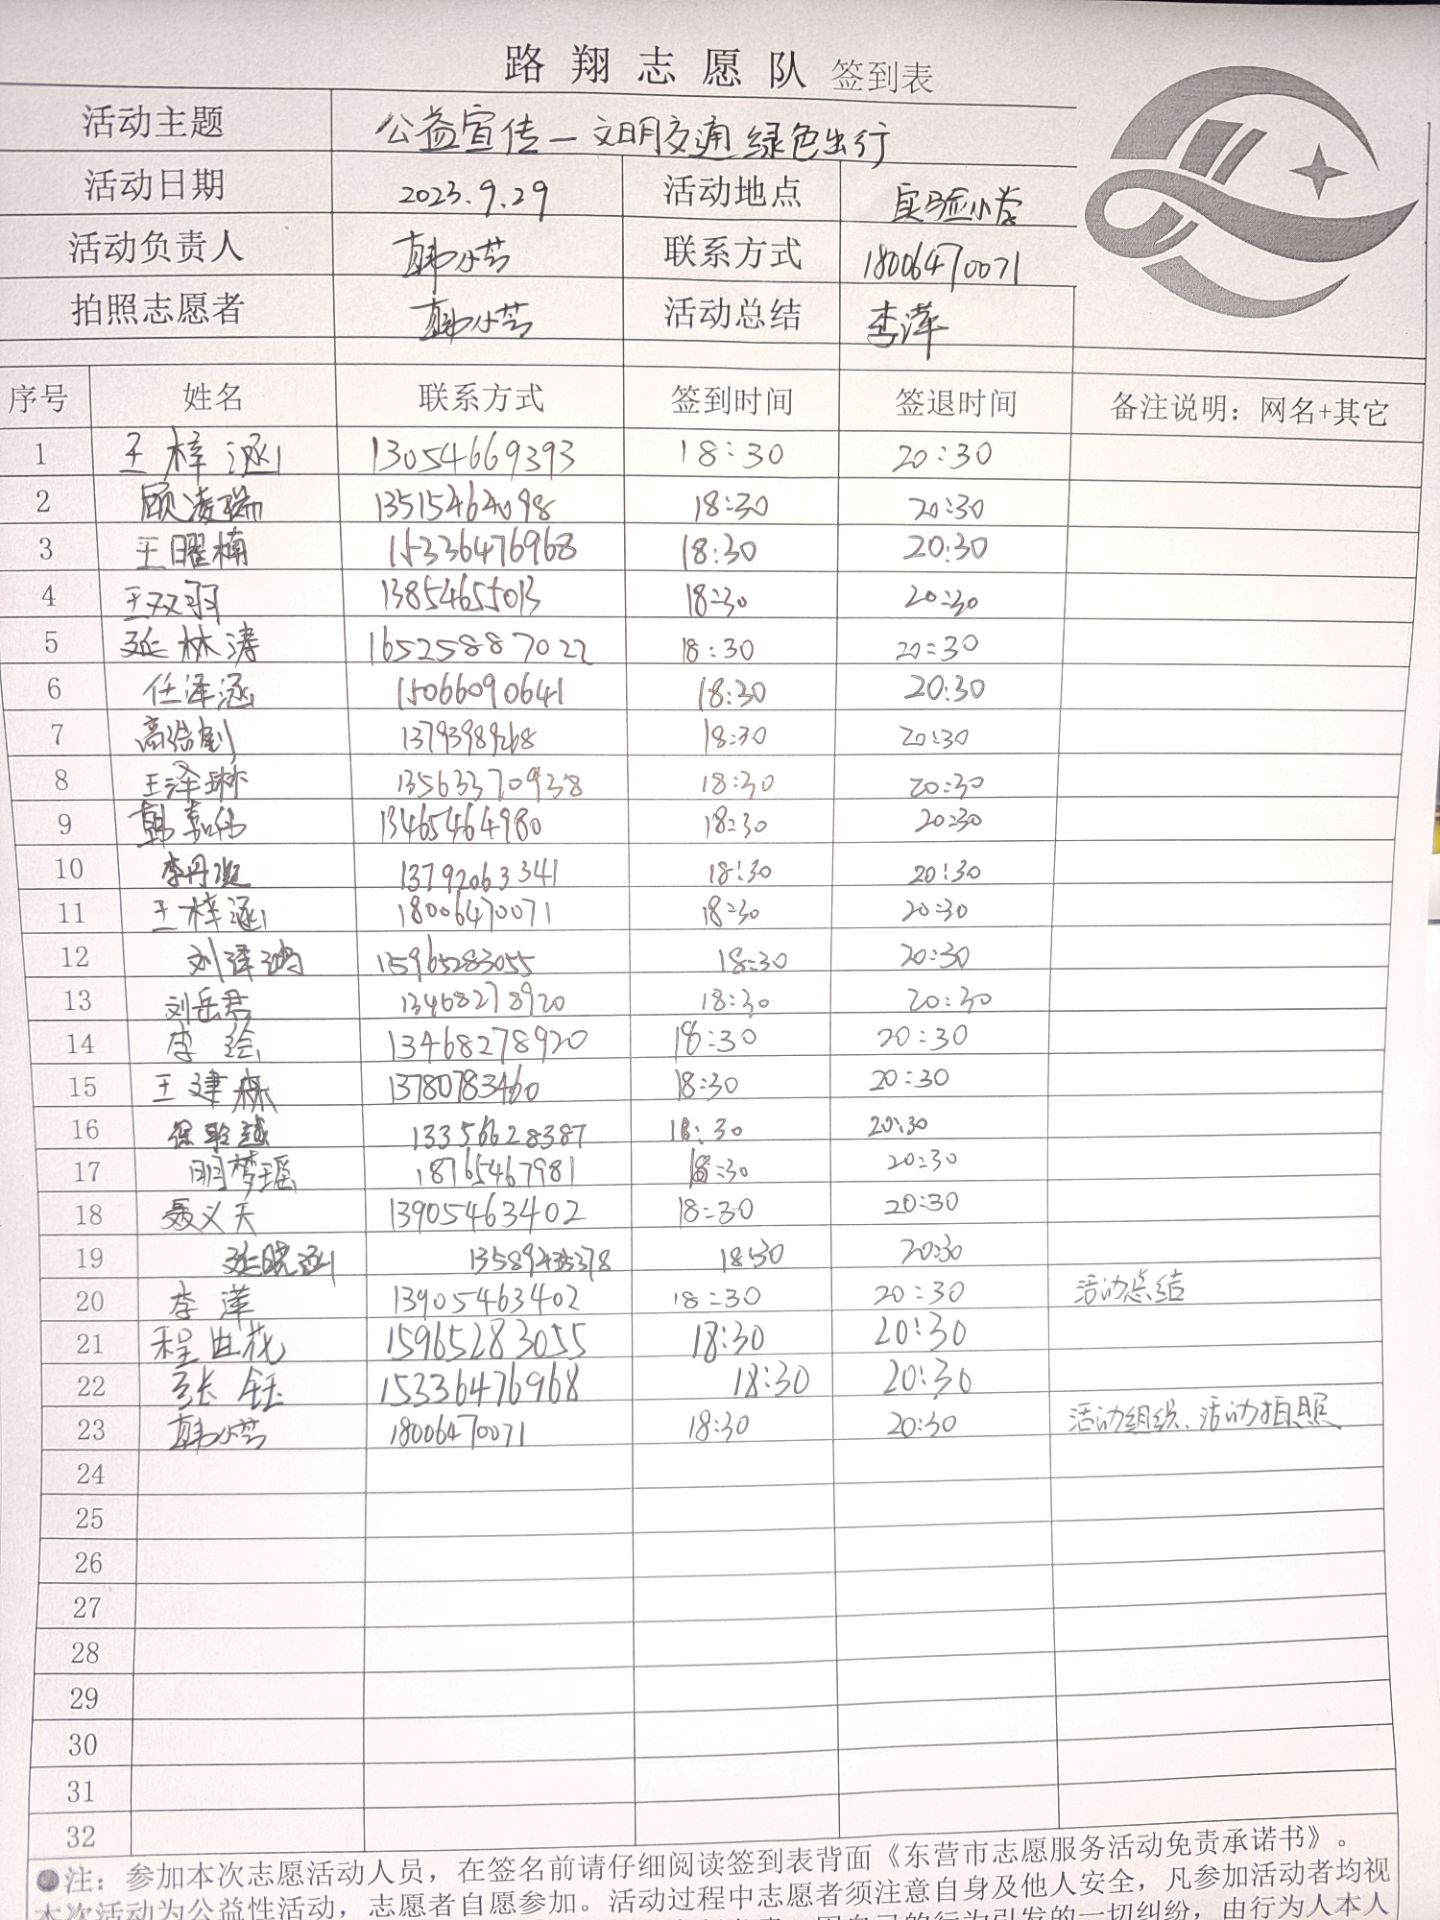 路翔志愿队 签到表
活动主题 公益宣传—文明交通 绿色出行
活动日期 2023.9.29 活动地点 实验小学
活动负责人 韩小芸 联系方式 18006470071
拍照志愿者 韩小芸 活动总结 李萍
序号 姓名 联系方式 签到时间 签退时间 备注说明：网名+其它
1 王梓涵 13054669393 18:30 20:30
2 顾凌瑞 13515464098 18:30 20:30
3 王曜楠 15336476968 18:30 20:30
4 王双羽 13854655013 18:30 20:30
5 延林涛 16525887022 18:30 20:30
6 任泽涵 15066090641 18:30 20:30
7 18:30 20:30
8 王泽琳 13563370938 18:30 20:30
9 韩嘉伟 13465464980 18:30 20:30
10 李丹凝 13792063341 18:30 20:30
11 王梓涵 18006470071 18:30 20:30
12 刘泽鸿 15965283055 18:30 20:30
13 刘岳君 13468278920 18:30 20:30
14 李绘 13468278920 18:30 20:30
15 王建森 13780783460 18:30 20:30
16 13356628387 18:30 20:30
17 明梦瑶 18765467981 18:30 20:30
18 聂义天 13905463402 18:30 20:30
19 延晓涵 18:30 20:30
20 李萍 13905463402 18:30 20:30 活动总结
21 程世花 15965283055 18:30 20:30
22 张钰 15336476968 18:30 20:30
23 韩小芸 18006470071 18:30 20:30 活动组织、活动拍照
24
25
26
27
28
29
30
31
32
●注：参加本次志愿活动人员，在签名前请仔细阅读签到表背面《东营市志愿服务活动免责承诺书》。
本次活动为公益性活动，志愿者自愿参加。活动过程中志愿者须注意自身及他人安全，凡参加活动者均视
因自己的行为引发的一切纠纷，由行为人本人